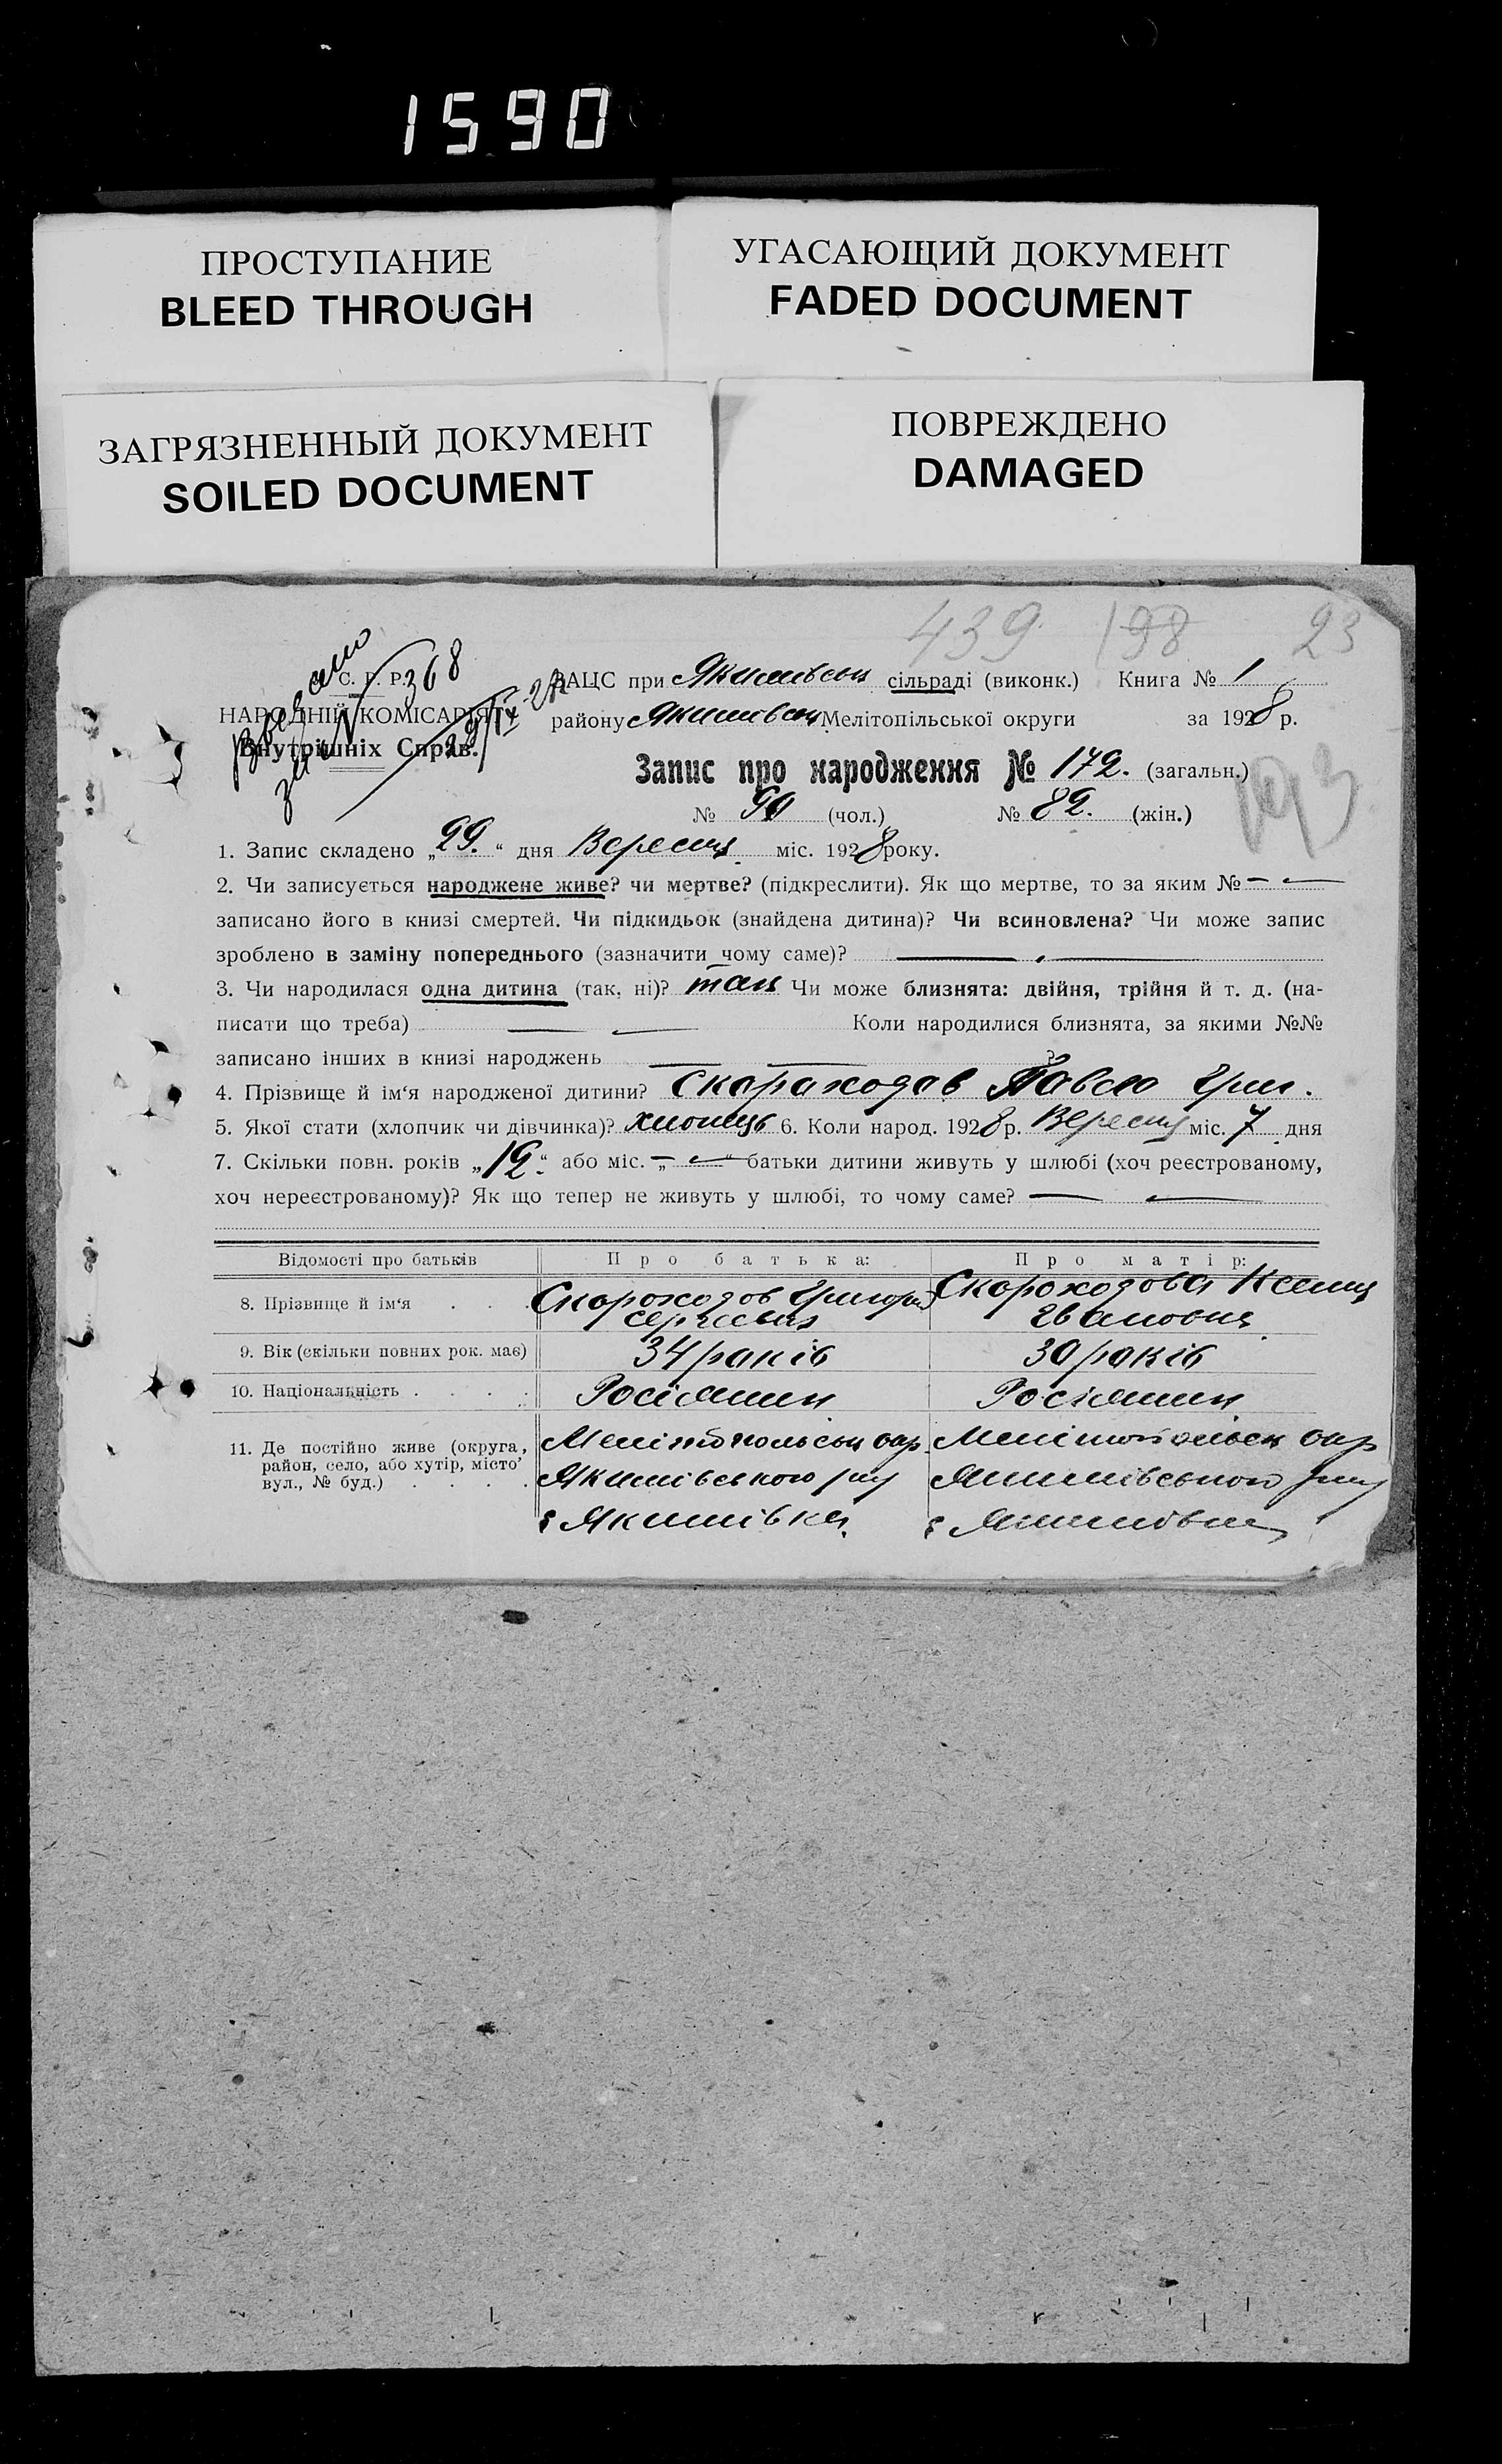 1590
ПРОСТУПАНИЕ
BLEED THROUGH
УГАСАЮЩИЙ ДОКУМЕНТ
FADED DOCUMENT
ЗАГРЯЗНЕННЫЙ ДОКУМЕНТ
SOILED DOCUMENT
ПОВРЕЖДЕНО
DAMAGED
439 198 23
368
С. Р. Р.
НАРОДНІЙ КОМІСАРІЯТ
Внутрішніх Справ.
ЗАЦС при Якимівськ сільраді (виконк.) Книга № 1
району Якимівськ Мелітопільської округи за 1928 р.
Запис про народження № 172. (загальн.)
193
№ 90 (чол.) № 82. (жін.)
1. Запис складено „29.“ дня Вересня міс. 1928 року.
2. Чи записується народжене живе? чи мертве? (підкреслити). Як що мертве, то за яким № —
записано його в книзі смертей. Чи підкидьок (знайдена дитина)? Чи всиновлена? Чи може запис
зроблено в заміну попереднього (зазначити чому саме)? —
3. Чи народилася одна дитина (так, ні)? так Чи може близнята: двійня, трійня й т. д. (на-
писати що треба) — Коли народилися близнята, за якими №№
записано інших в книзі народжень — ?
4. Прізвище й ім‘я народженої дитини? Скараходав Павло Григ.
5. Якої стати (хлопчик чи дівчинка)? хлопець 6. Коли народ. 1928 р. Вересня міс. 7 дня
7. Скільки повн. років „12“ або міс. „—“ батьки дитини живуть у шлюбі (хоч реєстрованому,
хоч нереєстрованому)? Як що тепер не живуть у шлюбі, то чому саме? —
Відомості про батьків Про батька: Про матір:
8. Прізвище й ім‘я . . . Скороходов Григорій Скороходова Ксенія
Сергієвич Івановна
9. Вік (скільки повних рок. має) 34 років 30 років
10. Національність . . . . Росіянин Росіянин
11. Де постійно живе (округа, Мелітопольськ окр. Мелітопольськ окр
район, село, або хутір, місто, Якимівського р-ну Якимівського р-ну
вул., № буд.) . . . . с Якимівка с Якимівка